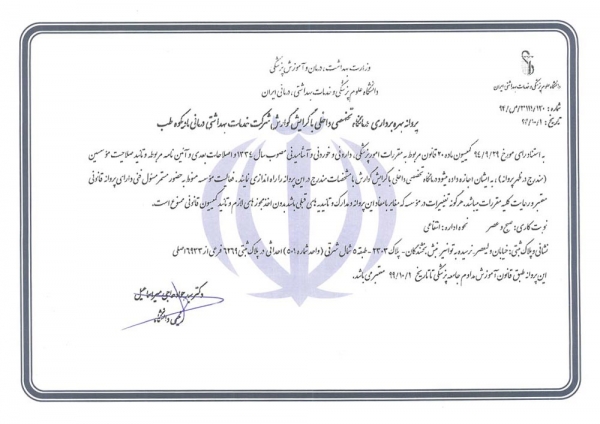 وزارت بهداشت، درمان و آموزش پزشکی
دانشگاه علوم پزشکی و خدمات بهداشتی، درمانی ایران
دانشگاه علوم پزشکی و خدمات بهداشتی درمانی ایران
شماره:
تاریخ:
پروانه بهره برداری درمانگاه تخصصی داخلی با گرایش گوارش شرکت خدمات بهداشتی درمانی نادرکوه طب
به استناد رای مورخ ۹۴/۹/۲۹ کمیسیون ماده ۲۰ قانون مربوط به مقررات امور پزشکی، داروئی و خوردنی و آشامیدنی مصوب سال ۱۳۳۴ و اصلاحات بعدی و آئین نامه مربوطه و تایید صلاحیت مؤسسین
(مندرج در ظهر پروانه)، به ایشان اجازه داده میشود درمانگاه تخصصی داخلی با گرایش گوارش با مشخصات مندرج در این پروانه را راه اندازی نمایند. فعالیت مؤسسه منوط به حضور مستمر مسئول فنی دارای پروانه قانونی
معتبر و رعایت کلیه مقررات میباشد. هرگونه تغییرات در مؤسسه که مغایر با مفاد این پروانه و مدارک و تاییدیه های قبلی باشد بدون اخذ مجوزهای لازم و تایید کمیسیون قانونی ممنوع است.
نوبت کاری: صبح و عصر نحوه اداره: انتفاعی
نشانی و پلاک ثبتی: خیابان ولیعصر نرسیده به توانیر نبش بخشندگان - پلاک ۲۳۰۳ - طبقه ۵ شمال شرقی (واحد شماره ۵۰۱) احداثی در پلاک ثبتی ۶۲۶۹ فرعی از ۱۶۹۲۳ اصلی
این پروانه طبق قانون آموزش مداوم جامعه پزشکی تا تاریخ ۹۹/۱۰/۱ معتبر می باشد.
دکتر سید
دانشگاه